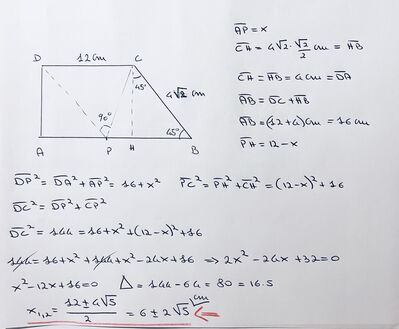 AP = x
CH = 4√2 · √2/2 cm = HB
D 12 cm C
45°
4√2 cm
CH = HB = 4 cm = DA
AB = DC + HB
90°
AB = (12+4) cm = 16 cm
45°
A P H B
PH = 12 - x
DP² = DA² + AP² = 16 + x² PC² = PH² + CH² = (12-x)² + 16
DC² = DP² + CP²
DC² = 144 = 16 + x² + (12-x)² + 16
144 = 16 + x² + 144 + x² - 24x + 16 ⇒ 2x² - 24x + 32 = 0
x² - 12x + 16 = 0 Δ = 144 - 64 = 80 = 16.5
x₁,₂ = (12 ± 4√5)/2 = 6 ± 2√5 cm ⇐